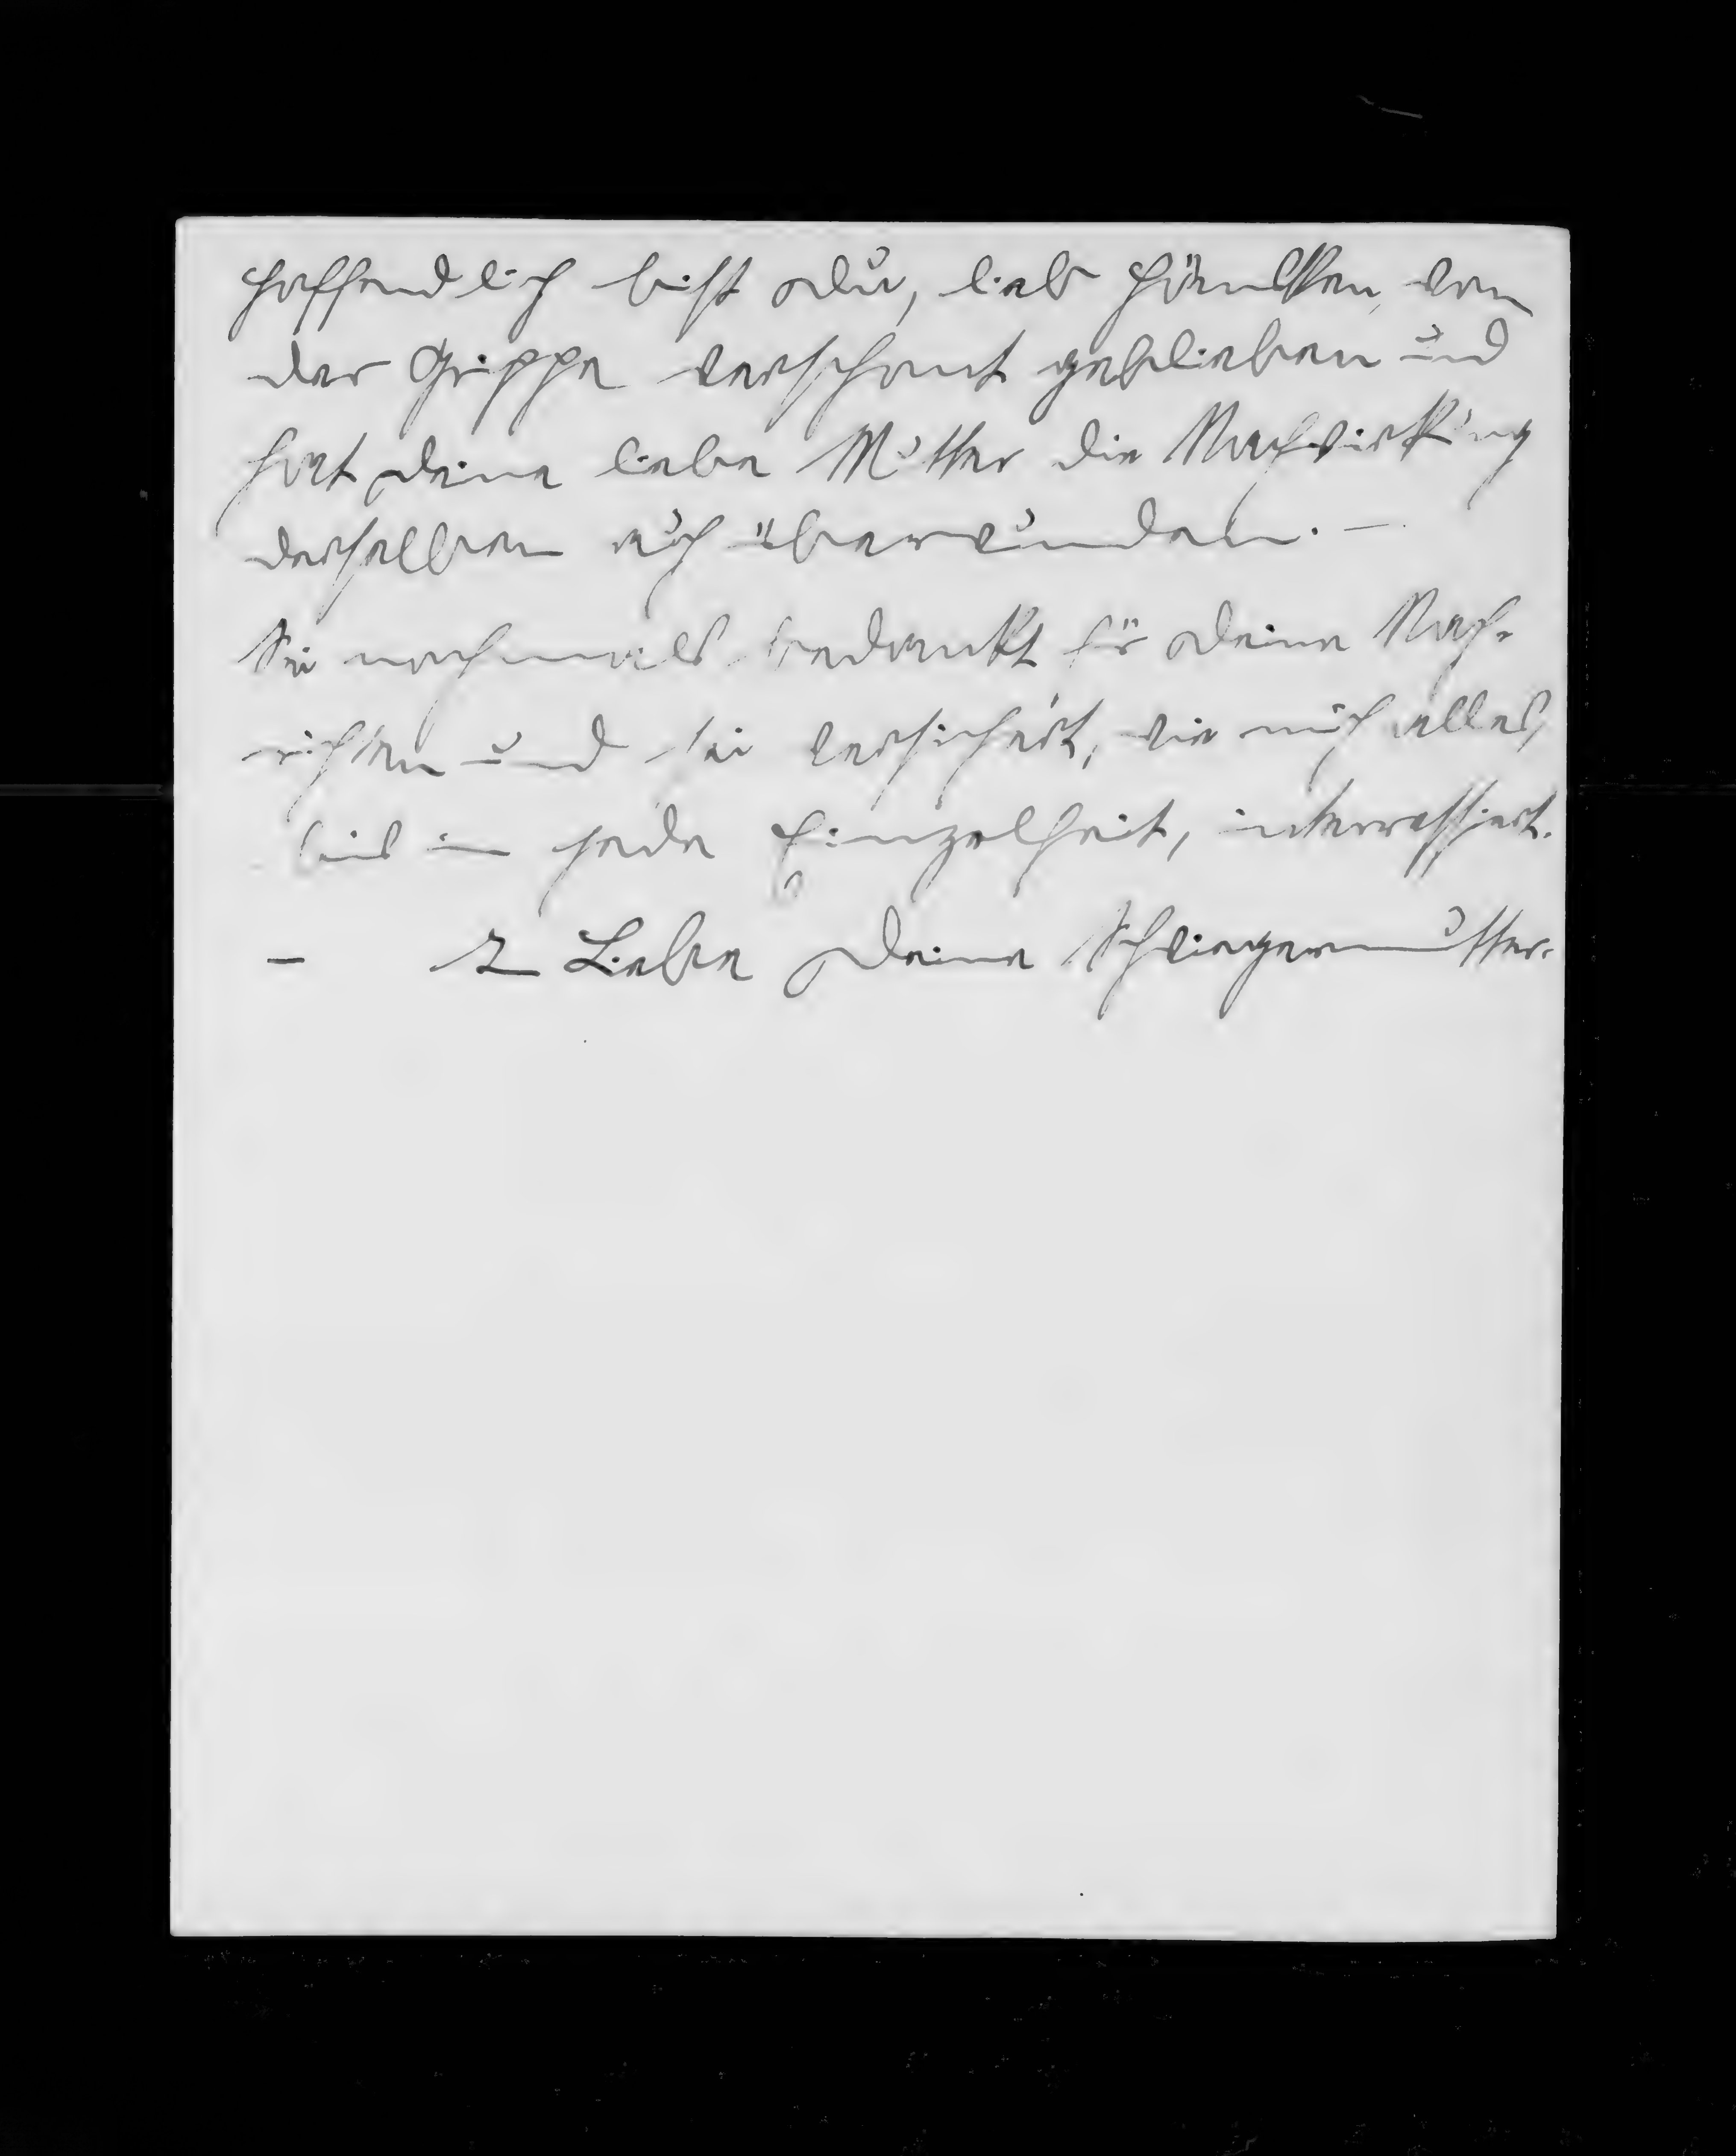 hoffendlich bist Du, lieb Häns'chen, von
der Grippe verschont geblieben und
hat Deine liebe Mutter die Nachwirkung
derselben auch überwunden. —
Sei nochmals bedankt für Deine Nach-
richten und sei versichert, wie mich alles,
bis in jede Einzelheit, interressiert.
— In Liebe Deine Schwiegermutter.